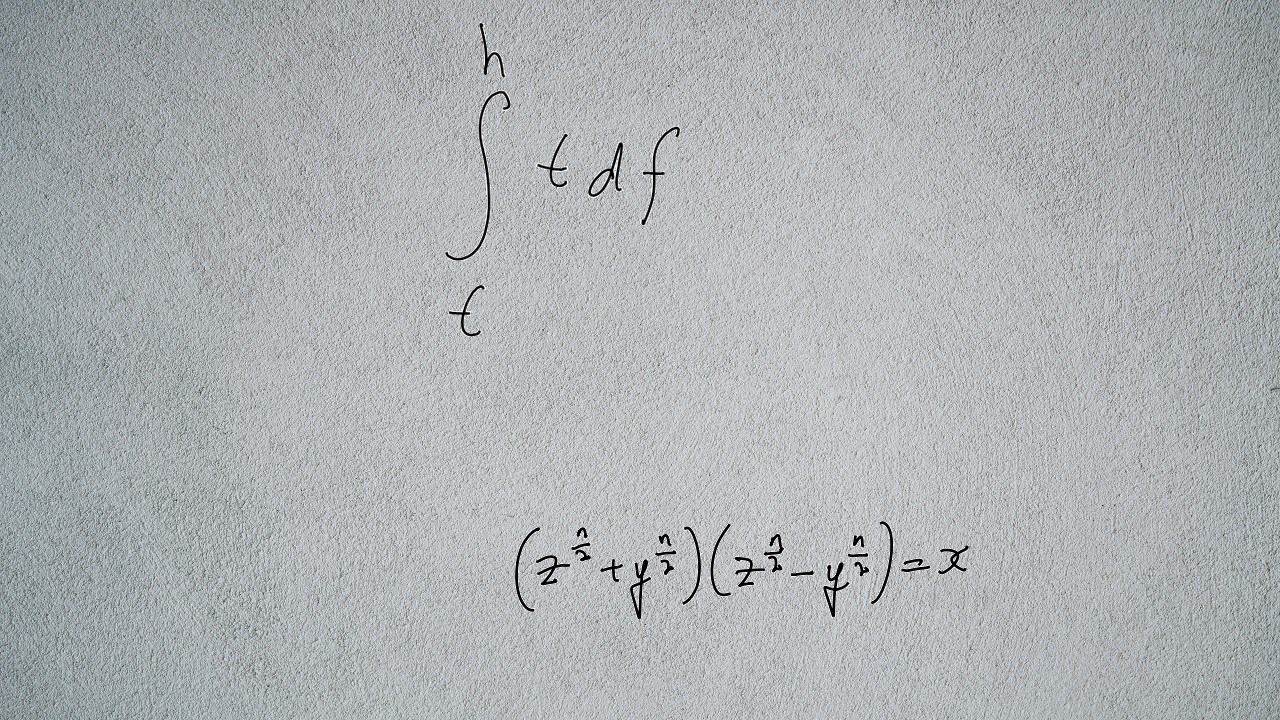 \int_{t}^{h} t \, d f
\left( z^{\frac{n}{2}} + y^{\frac{n}{2}} \right) \left( z^{\frac{n}{2}} - y^{\frac{n}{2}} \right) = x